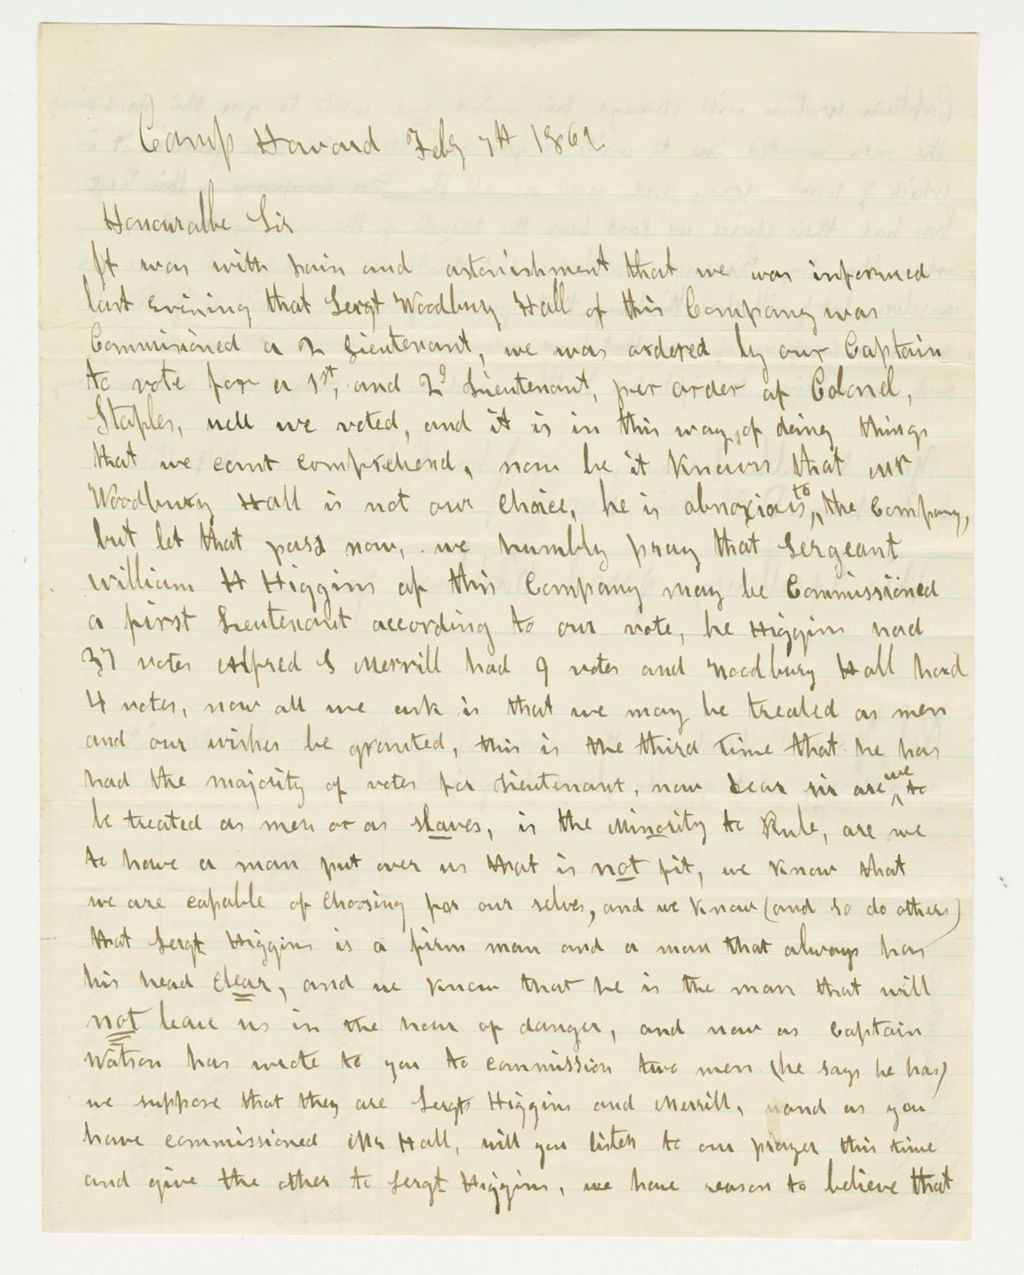 Camp Howard Feby 7th 1862
Honouralbe Sir
It was with pain and astonishment that we was informed
last evining that Sergt Woodbury Hall of this Company was
Commisioned a 2 Lieutenant, we was ordered by our Captain
to vote for a 1st, and 2d Lieutenant, per order of Colonel,
Staples, well we voted, and it is in this way, of doing things
that we cant comprehend, now be it known that
Woodbury Hall is not our Choice, he is abnoxious to the Company,
but let that pass now, we humbly pray that Sergeant
William H Higgins of this Company may be Commissioned
a first Lieutenant according to our vote, he Higgins had
37 votes Alfred S Merrill had 9 votes and Woodbury Hall had
4 votes, now all we ask is that we may be treated as men
and our wishes be granted, this is the third time that he has
had the majority of votes for Lieutenant, now Dear sir are we to
be treated as men or as slaves, is the Minority to Rule, are we
to have a man put over us that is not fit, we know that
we are capable of Choosing for our selves, and we know (and so do others)
that Sergt Higgins is a firm man and a man that always has
his head clear, and we know that he is the man that will
not leave us in the hour of danger, and now as Captain
Watson has wrote to you to commission two men (he says he has)
we suppose that they are Sergts Higgins and Merrill, and as you
have commissioned Mr Hall, will you listen to our prayer this time
and give the other to Sergt Higgins, we have reason to believe that